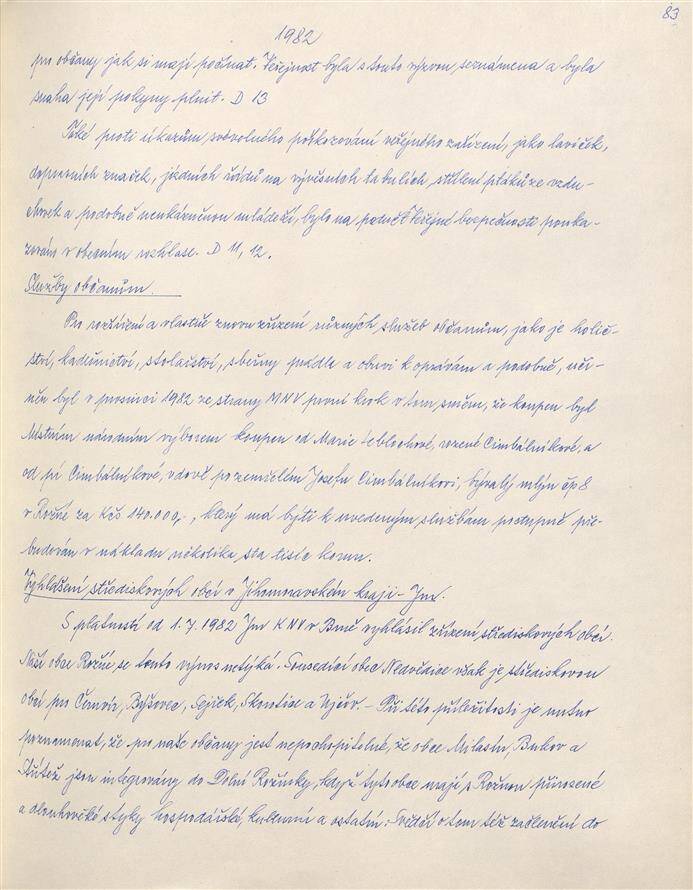 83
1982
pro občany jak si mají počínat. Veřejnost byla s touto výzvou seznámena a byla
snaha její pokyny plnit. D 13
Také proti úkazům svévolného poškozování veřejného zařízení, jako laviček,
dopravních značek, jízdních řádů na vývěsních tabulích, střílení ptáků ze vzdu-
chovek a podobně neukázněnou mládeží, bylo na podnět Veřejné bezpečnosti pouka-
zováno v obecním rozhlase. D 11, 12.
Služby občanům.
Pro rozšíření a vlastně znovu zřízení různých služeb občanům, jako je holič-
ství, kadeřnictví, stolařství, sběrny prádla a obuvi k opravám a podobně, uči-
něn byl v prosinci 1982 ze strany MNV první krok v tom směru, že koupen byl
Místním národním výborem koupen od Marie roz
ené Cimbálníkové, a
od pí Cimbálníkové, vdově po zemřelém Josefu Cimbálníkovi, bývalý mlýn čp 8
v Rožné za Kčs 140.000,-, který má býti k uvedeným službám postupně pře-
budován v nákladu několika sta tisíc korun.
Vyhlášení střediskových obcí v Jihomoravském kraji - Jm.
S platností od 1. 7. 1982 Jm KNV v Brně vyhlásil zřízení střediskových obcí.
Naší obce Rožné, se tento výnos netýká. Sousedící obec Nedvědice však je střediskovou
obcí pro Černvír, Býšovec, Sejřek, Skorotice a Ujčov. - Při této příležitosti je nutno
poznamenat, že pro naše občany jest nepochopitelné, že obce Milasín, Bukov a
Střítež jsou integrovány do Dolní Rožínky, když tyto obce mají s Rožnou přirozené
a dlouhověké styky hospodářské, kulturní a ostatní. Svědčí o tom též začlenění do